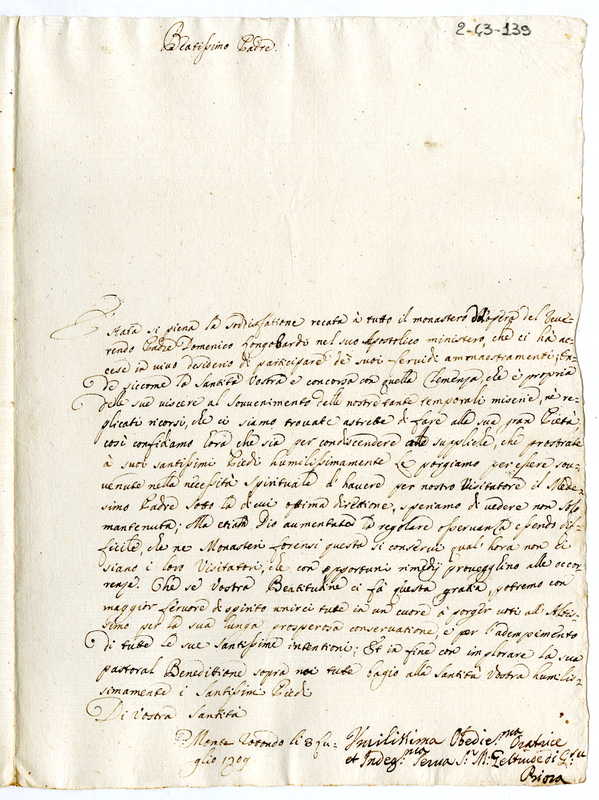 2-43-139
Beatissimo Padre
È stata si piena la sodisfatione recata à tutto il monastero dall'opera del Reve-
rendo Padre Domenico Longobardi nel suo Apostolico ministero, che ci hà ac-
cese in vivo desiderio di participare de suoi fervidi ammaestramenti; On-
de siccome la Santità Vostra è concorsa con quella Clemenza, che è propria
delle sue viscere al Souvenimento delle nostre tante temporali miserie, nè re-
plicati ricorsi, che ci siamo trovate astrette di fare alla sua gran Pietà,
così confidamo hora che sia per condiscendere alle suppliche, che prostrate
à suoi santissimi Piedi humilissimamente Le porgiamo per essere sou-
venute nella necessità Spirituale d'havere per nostro Visitatore il Mede-
simo Padre sotto la di cui ottima direttione, speriamo di vedere non solo
mantenuta; Ma etiam Dio aumentata la regolare osservanza essendo dif-
ficile, che ne Monasteri forensi questa si conservi qual' hora non vi
siano i loro Visitatori, che con opportuni rimedij proueghino alle occor-
renze. Che se Vostra Beatitudine ci fà questa gratia, potremo con
maggior fervore di spirito unirci tutte in un cuore à porger voti all' Altis-
simo per la sua lunga prosperosa conservatione, e per l'adempimento
di tutte le sue Santissime intentioni; Et in fine con implorare la sua
pastoral Beneditione sopra noi tutte bagio alla Santità Vostra humilis-
simamente i Santissimi Piedi
Di Vostra Santità
Monte rotondo li 8 lu-
glio 1709
Humilissima Obedie.ma Oratrice
et Indeg.ma Serva S.r M. Geltrude di
Priora